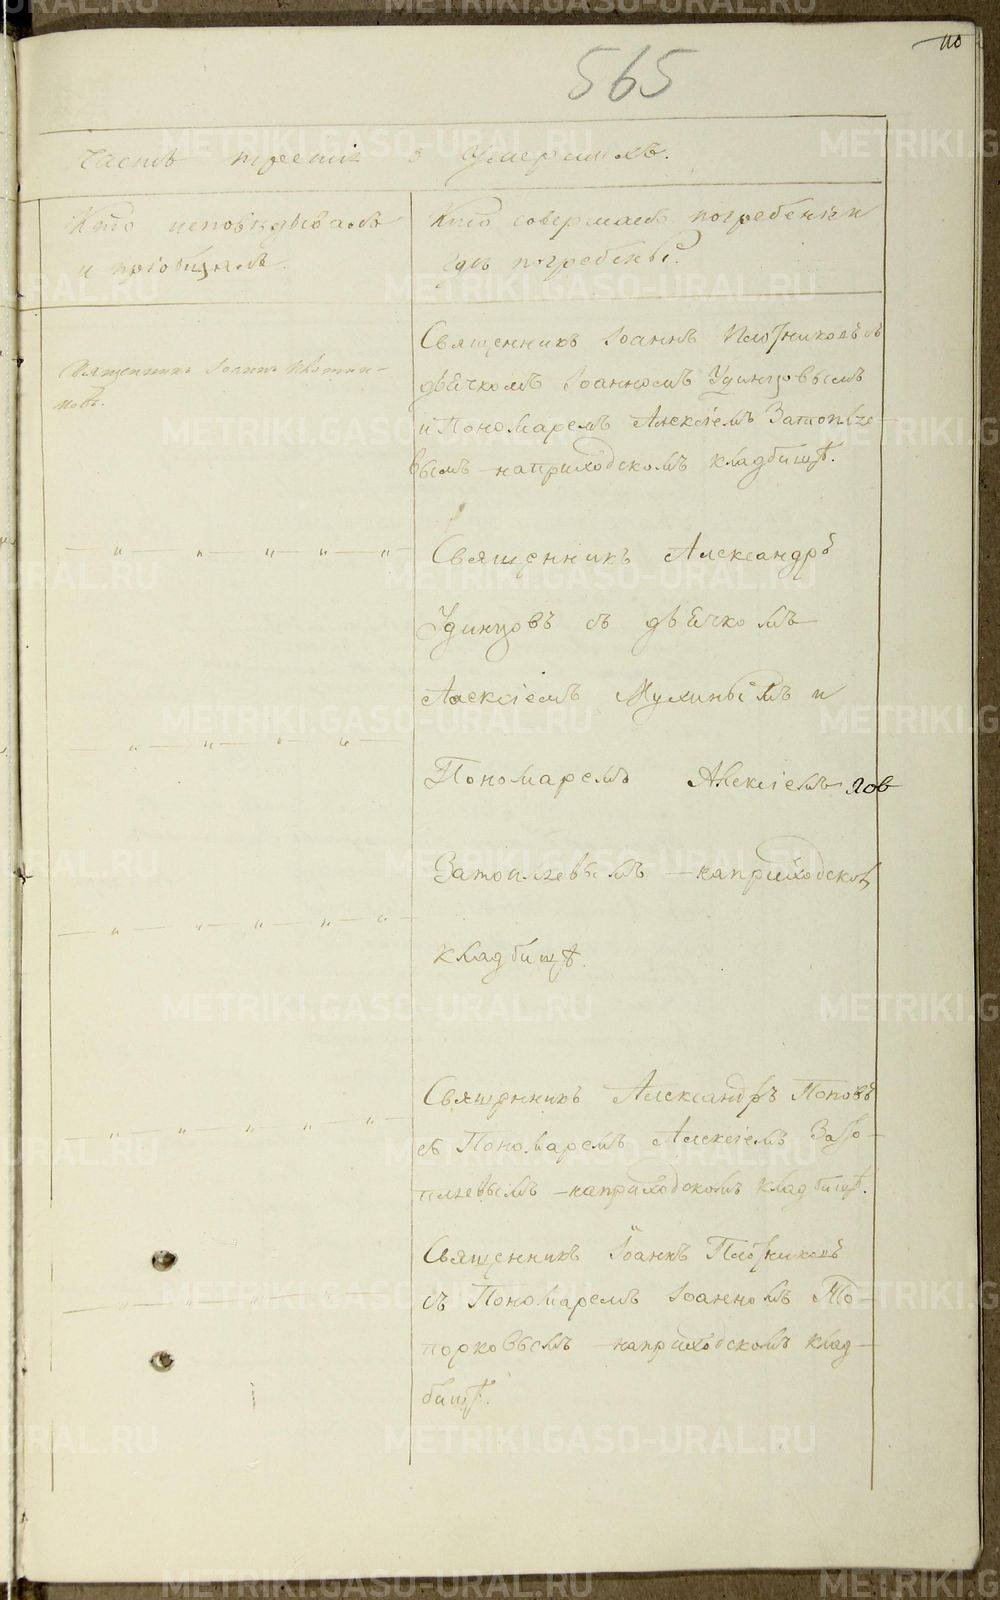 110
565
Часть третія о Умершихъ.
Кто исповѣдывалъ
и пріобщалъ.
Кто совершалъ погребеніе и
гдѣ погребены.
Священникъ Іоаннъ Плотни-
ковъ.
Священникъ Іоаннъ Плотниковъ съ
дьячкомъ Іоанномъ Удинцовымъ
и Пономаремъ Алексіемъ Затопляе-
вымъ на приходскомъ кладбищѣ.
— " — " — " — " — "
Священникъ Александръ
Удинцовъ съ дьячкомъ
Алексіемъ Мухинымъ и
— " — " — " — " —
Пономаремъ Алексіемъ
Затопляевымъ на приходском
— " — " — " — " —
кладбищѣ.
Священникъ Александръ Поповъ
— " — " — " — " — "
съ Пономаремъ Алексіемъ Зато-
пляевымъ на приходскомъ кладбищѣ.
Священникъ Іоаннъ Плотниковъ
— " — " — " — " —
съ Пономаремъ Іоанномъ То-
порковымъ на приходскомъ клад-
бищѣ.
METRIKI.GASO-URAL.RU